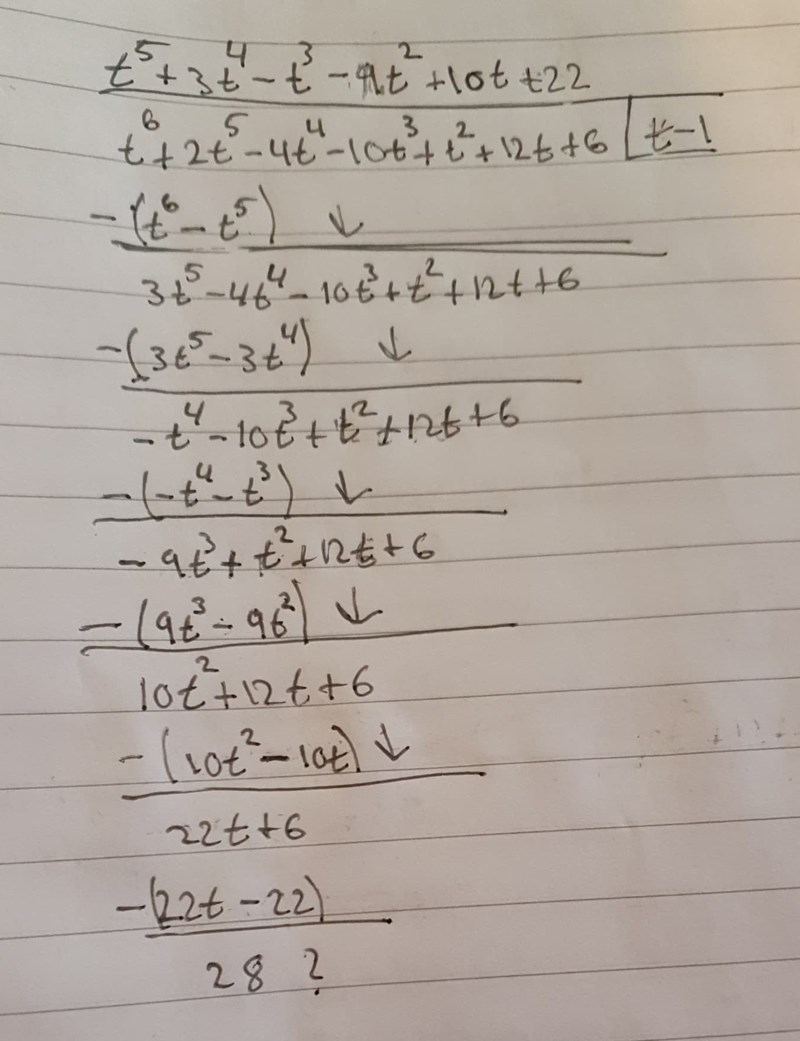 t⁵ + 3t⁴ - t³ - 9t² + 10t + 22
t⁶ + 2t⁵ - 4t⁴ - 10t³ + t² + 12t + 6 | t - 1
- (t⁶ - t⁵) ↓
3t⁵ - 4t⁴ - 10t³ + t² + 12t + 6
- (3t⁵ - 3t⁴) ↓
- t⁴ - 10t³ + t² + 12t + 6
- (- t⁴ - t³) ↓
- 9t³ + t² + 12t + 6
- (9t³ - 9t²) ↓
10t² + 12t + 6
- (10t² - 10t) ↓
22t + 6
- (22t - 22)
28 ?